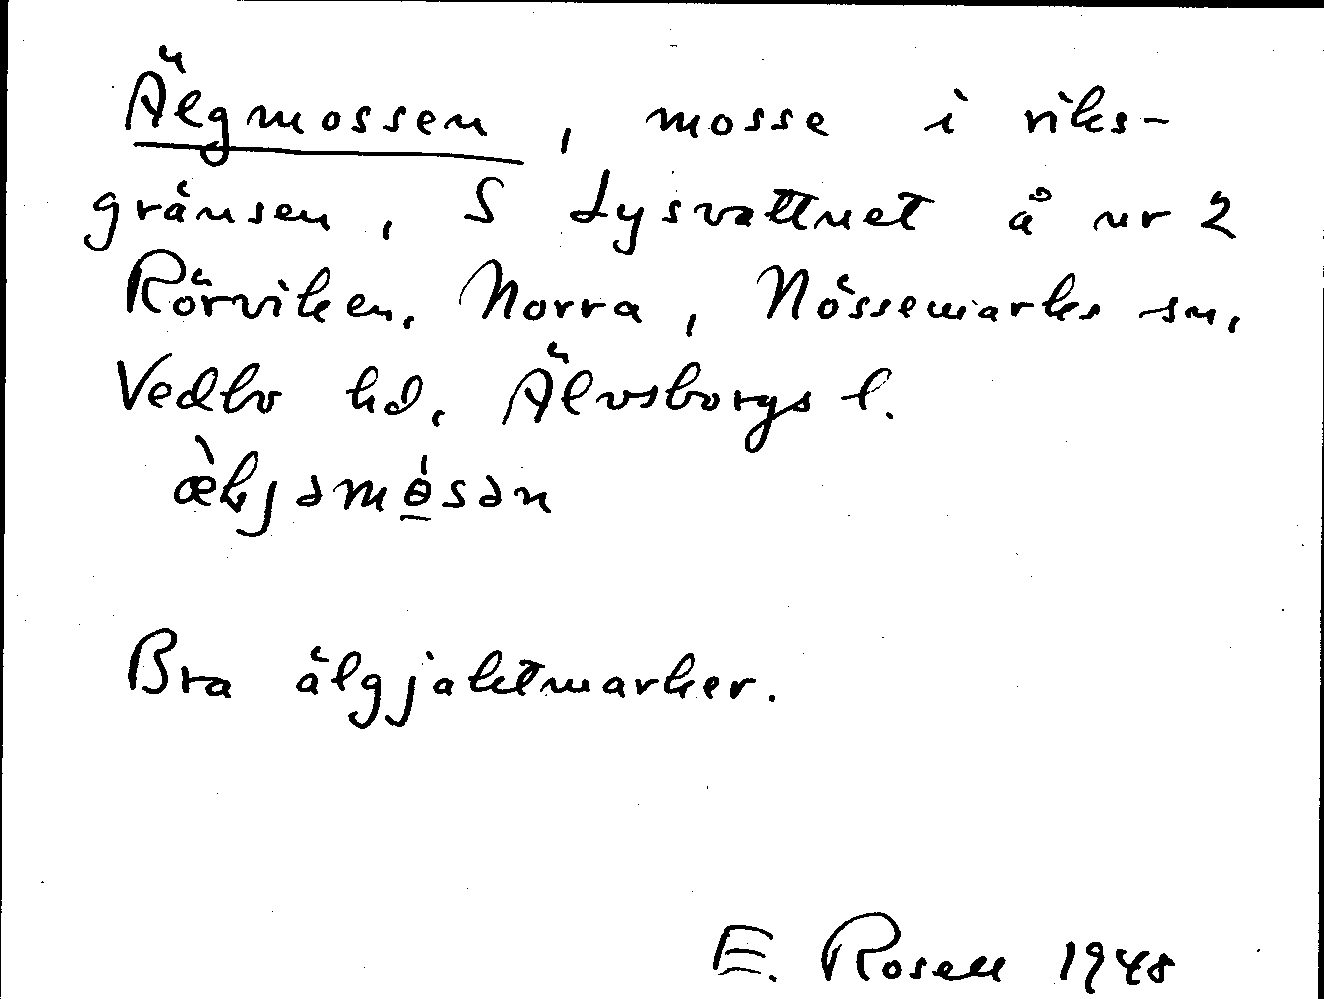 Älgmossen, mosse i riks-
gränsen, S Lysvattnet å nr 2
Rörviken, Norra, Nössemarks sn,
Vedbo hd, Älvsborgs l.
æ̀ljəmɵ̱́sən
Bra älgjaktmarker.
E. Rosell 1948